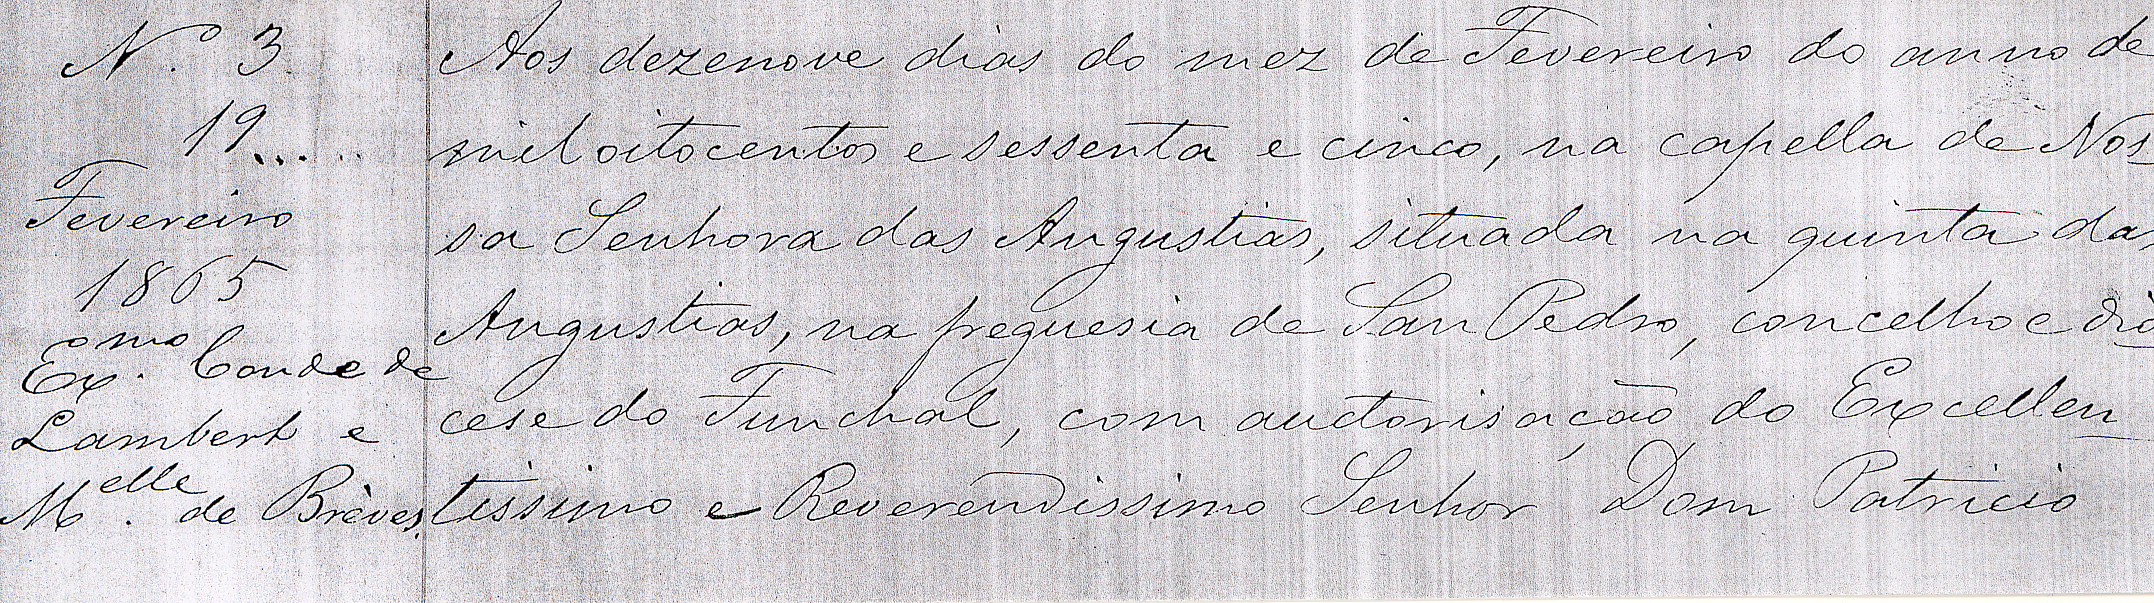 N.º 3
19......
Fevereiro
1865
Ex.mo Conde de
Lambert e
M.elle de Brèves.
Aos dezenove dias do mez de Fevereiro do anno de
mil oitocentos e sessenta e cinco, na capella de Nos
sa Senhora das Angustias, situada na quinta das
Angustias, na freguesia de San Pedro, concelho e dio
cese do Funchal, com auctorisação do Excellen
tissimo e Reverendissimo Senhor Dom Patricio